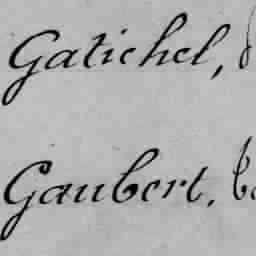 Gatichel,
Gaubert.